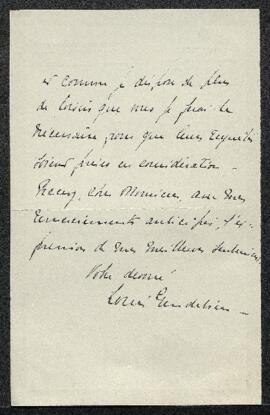 et comme je dispose de plus
de loisirs que vous je ferai le
nécessaire, pour que leurs requêtes
soient prises en considération.
Recevez, cher Monsieur, avec mes
remerciements anticipés, l'ex-
pression de mes meilleurs sentiments
Votre dévoué
Louis